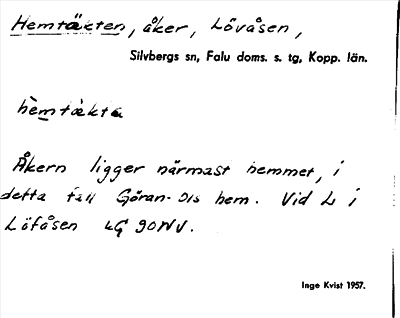 Hemtäkten, åker, Lövåsen,
Silvbergs sn, Falu doms. s. tg, Kopp. län.
hèmtäkta
Åkern ligger närmast hemmet, i
detta fall Göran-Ols hem. Vid L i
Löfåsen LG 90NV.
Inge Kvist 1957.